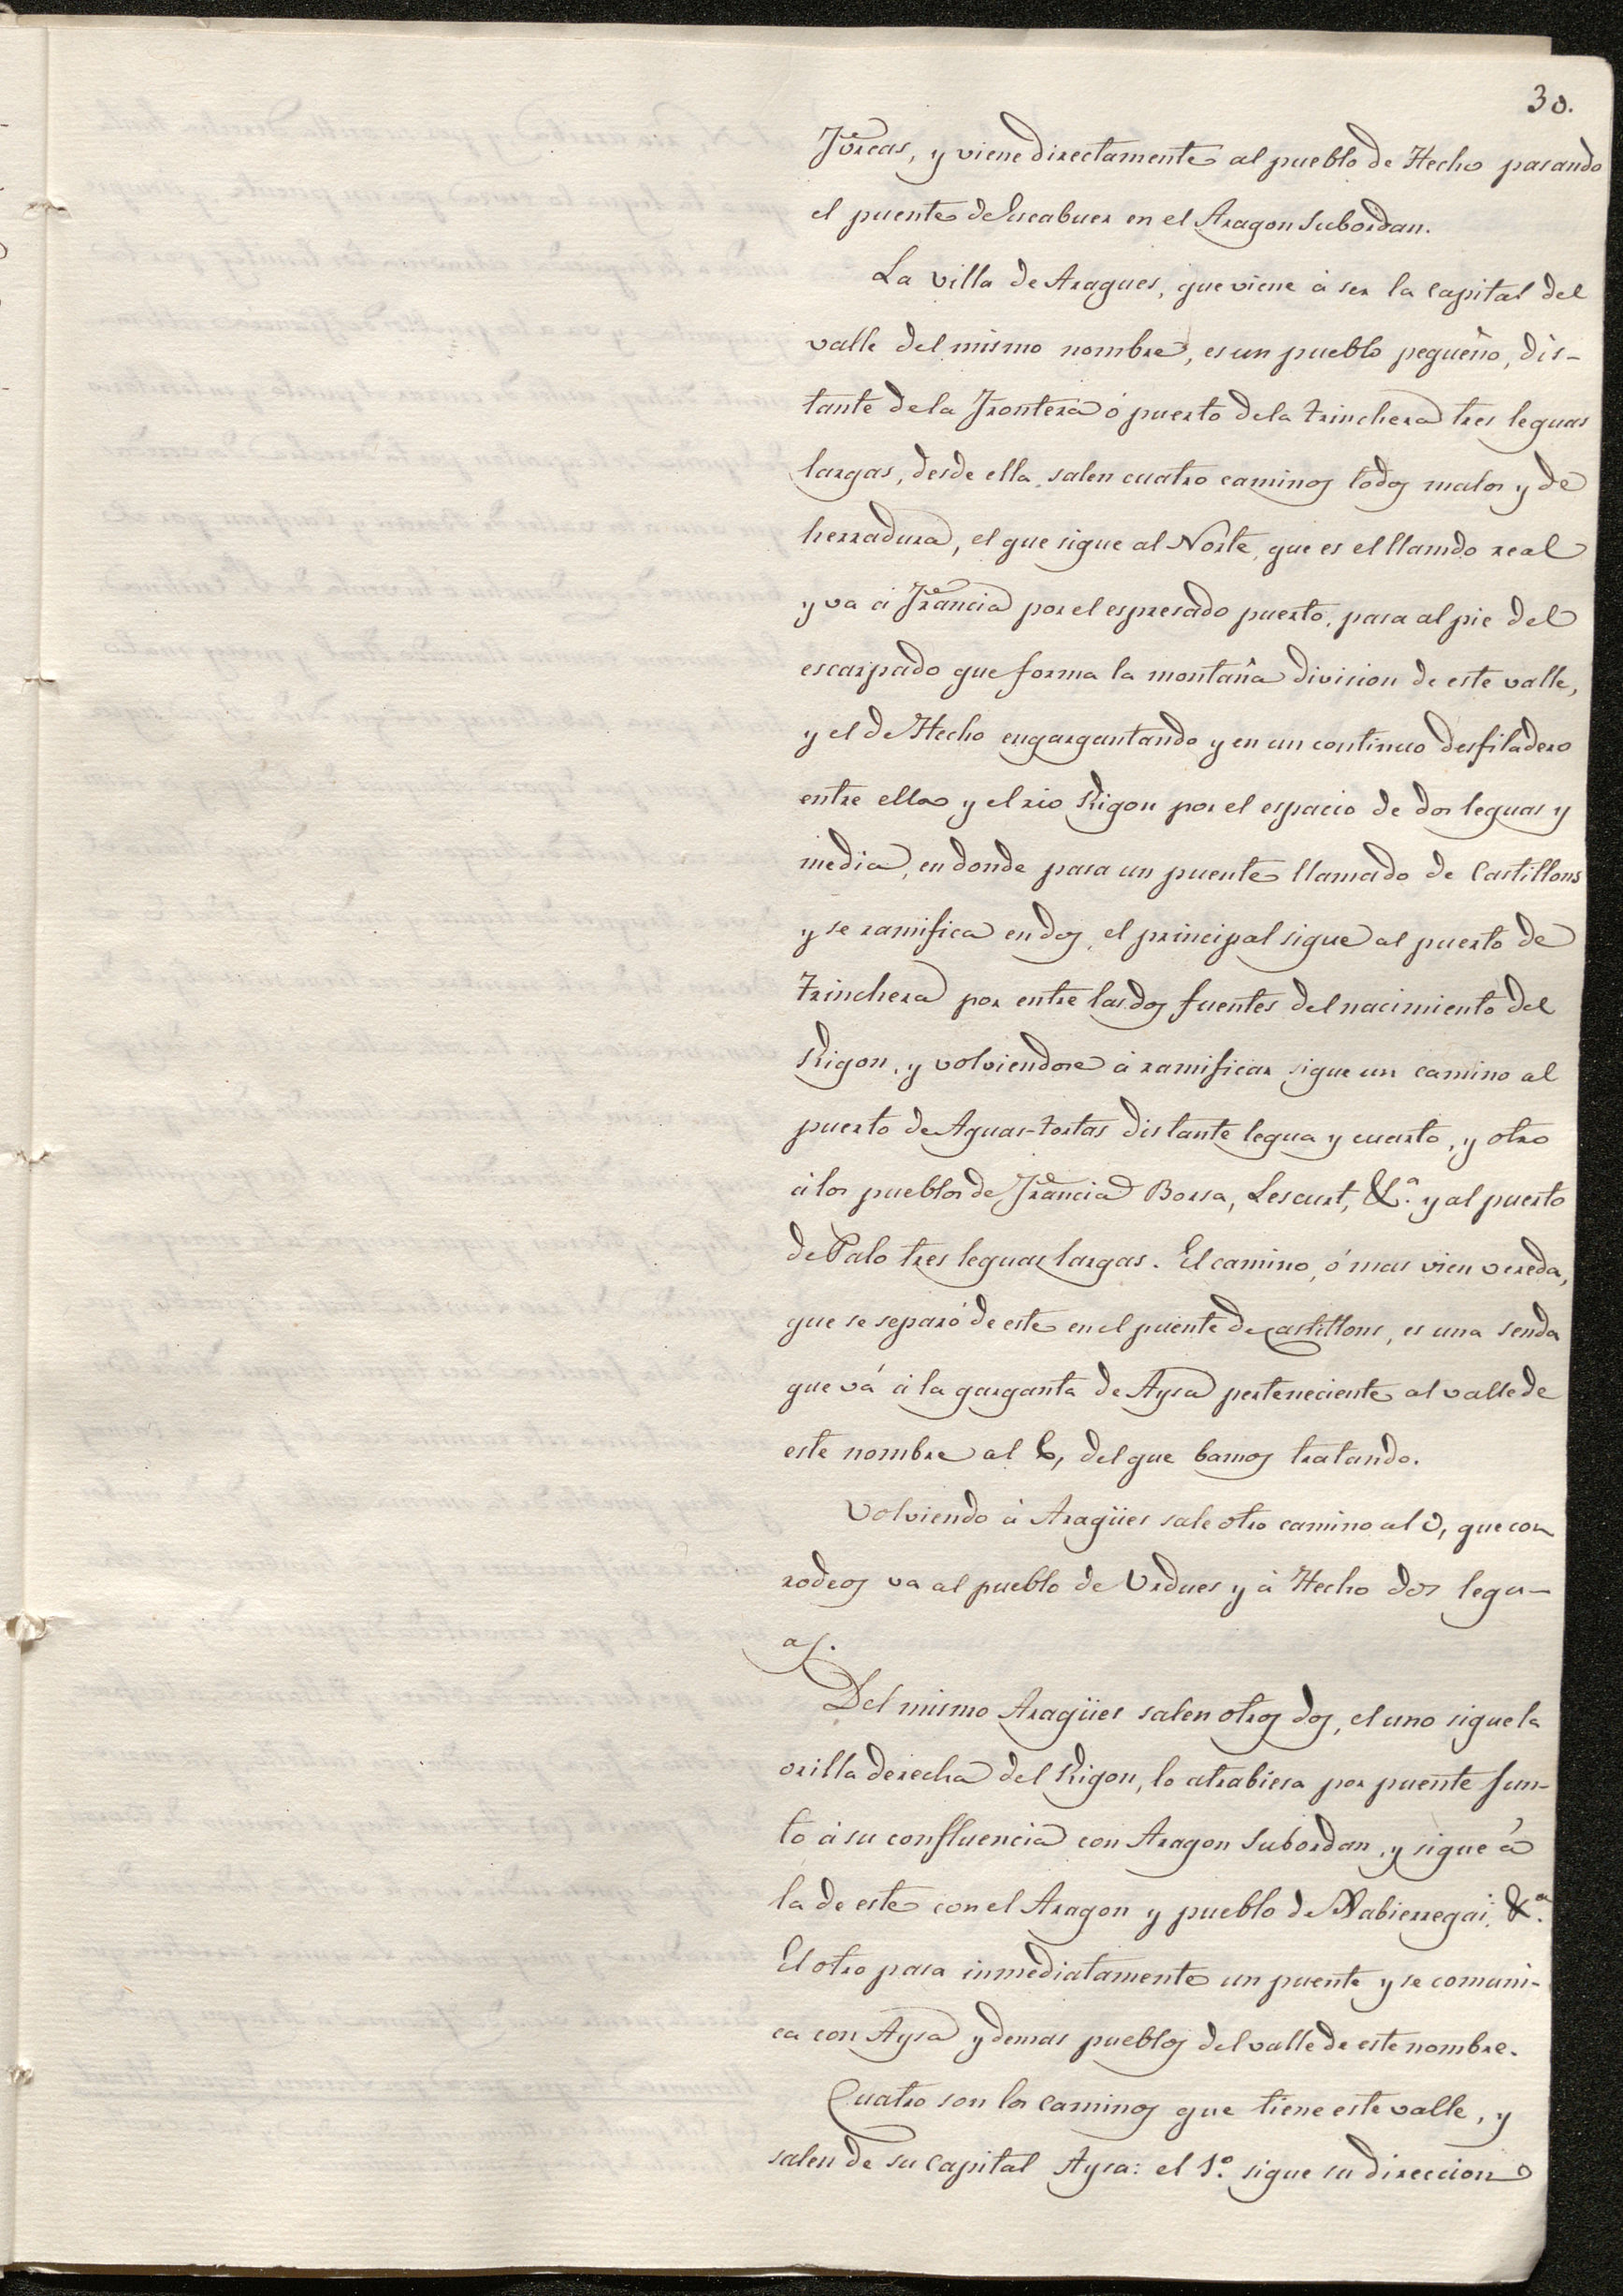 30.
Jureas, y viene directamente al pueblo de Hecho pasando
el puente de Escabues en el Aragon Subordan.
La villa de Aragues, que viene à ser la Capital del
valle del mismo nombre, es un pueblo pequeño, dis-
tante de la Frontera ó puerto de la trinchera tres leguas
largas, desde ella, salen cuatro caminos todos malos y de
herradura, el que sigue al Norte, que es el llamdo real
y va à Francia por el espresado puerto, pasa al pie del
escarpado que forma la montaña division de este valle,
y el de Hecho engargantando y en un continuo desfiladero
entre ella y el rio Rigon por el espacio de dos leguas y
media, en donde pasa un puente llamado de Castillons
y se ramifica en dos, el principal sigue al puerto de
trinchera por entre las dos fuentes del nacimiento del
Rigon, y volviendose à ramificar sigue un camino al
puerto de Aguas-tortas distante legua y cuarto, y otro
à los pueblos de Francia Borsa, Lescurt, &.ª y al puerto
de Palo tres leguas largas. El camino, ó mas vien vereda,
que se separó de este en el puente de Castillons, es una senda
que vá à la garganta de Aysa perteneciente al valle de
este nombre al E, del que bamos tratando.
Volviendo à Aragües sale otro camino al O, que con
rodeos va al pueblo de Urdues y à Hecho dos legu-
as.
Del mismo Aragües salen otros dos, el uno sigue la
orilla derecha del Rigon, lo atrabiesa por puente jun-
to à su confluencia con Aragon Subordan, y sigue á
la de este con el Aragon y pueblo de Rabierregai, &.ª
El otro pasa inmediatamente un puente y se comuni-
ca con Aysa y demas pueblos del valle de este nombre.
Cuatro son los caminos que tiene este valle, y
salen de su Capital Aysa: el 1.º sigue su direccion